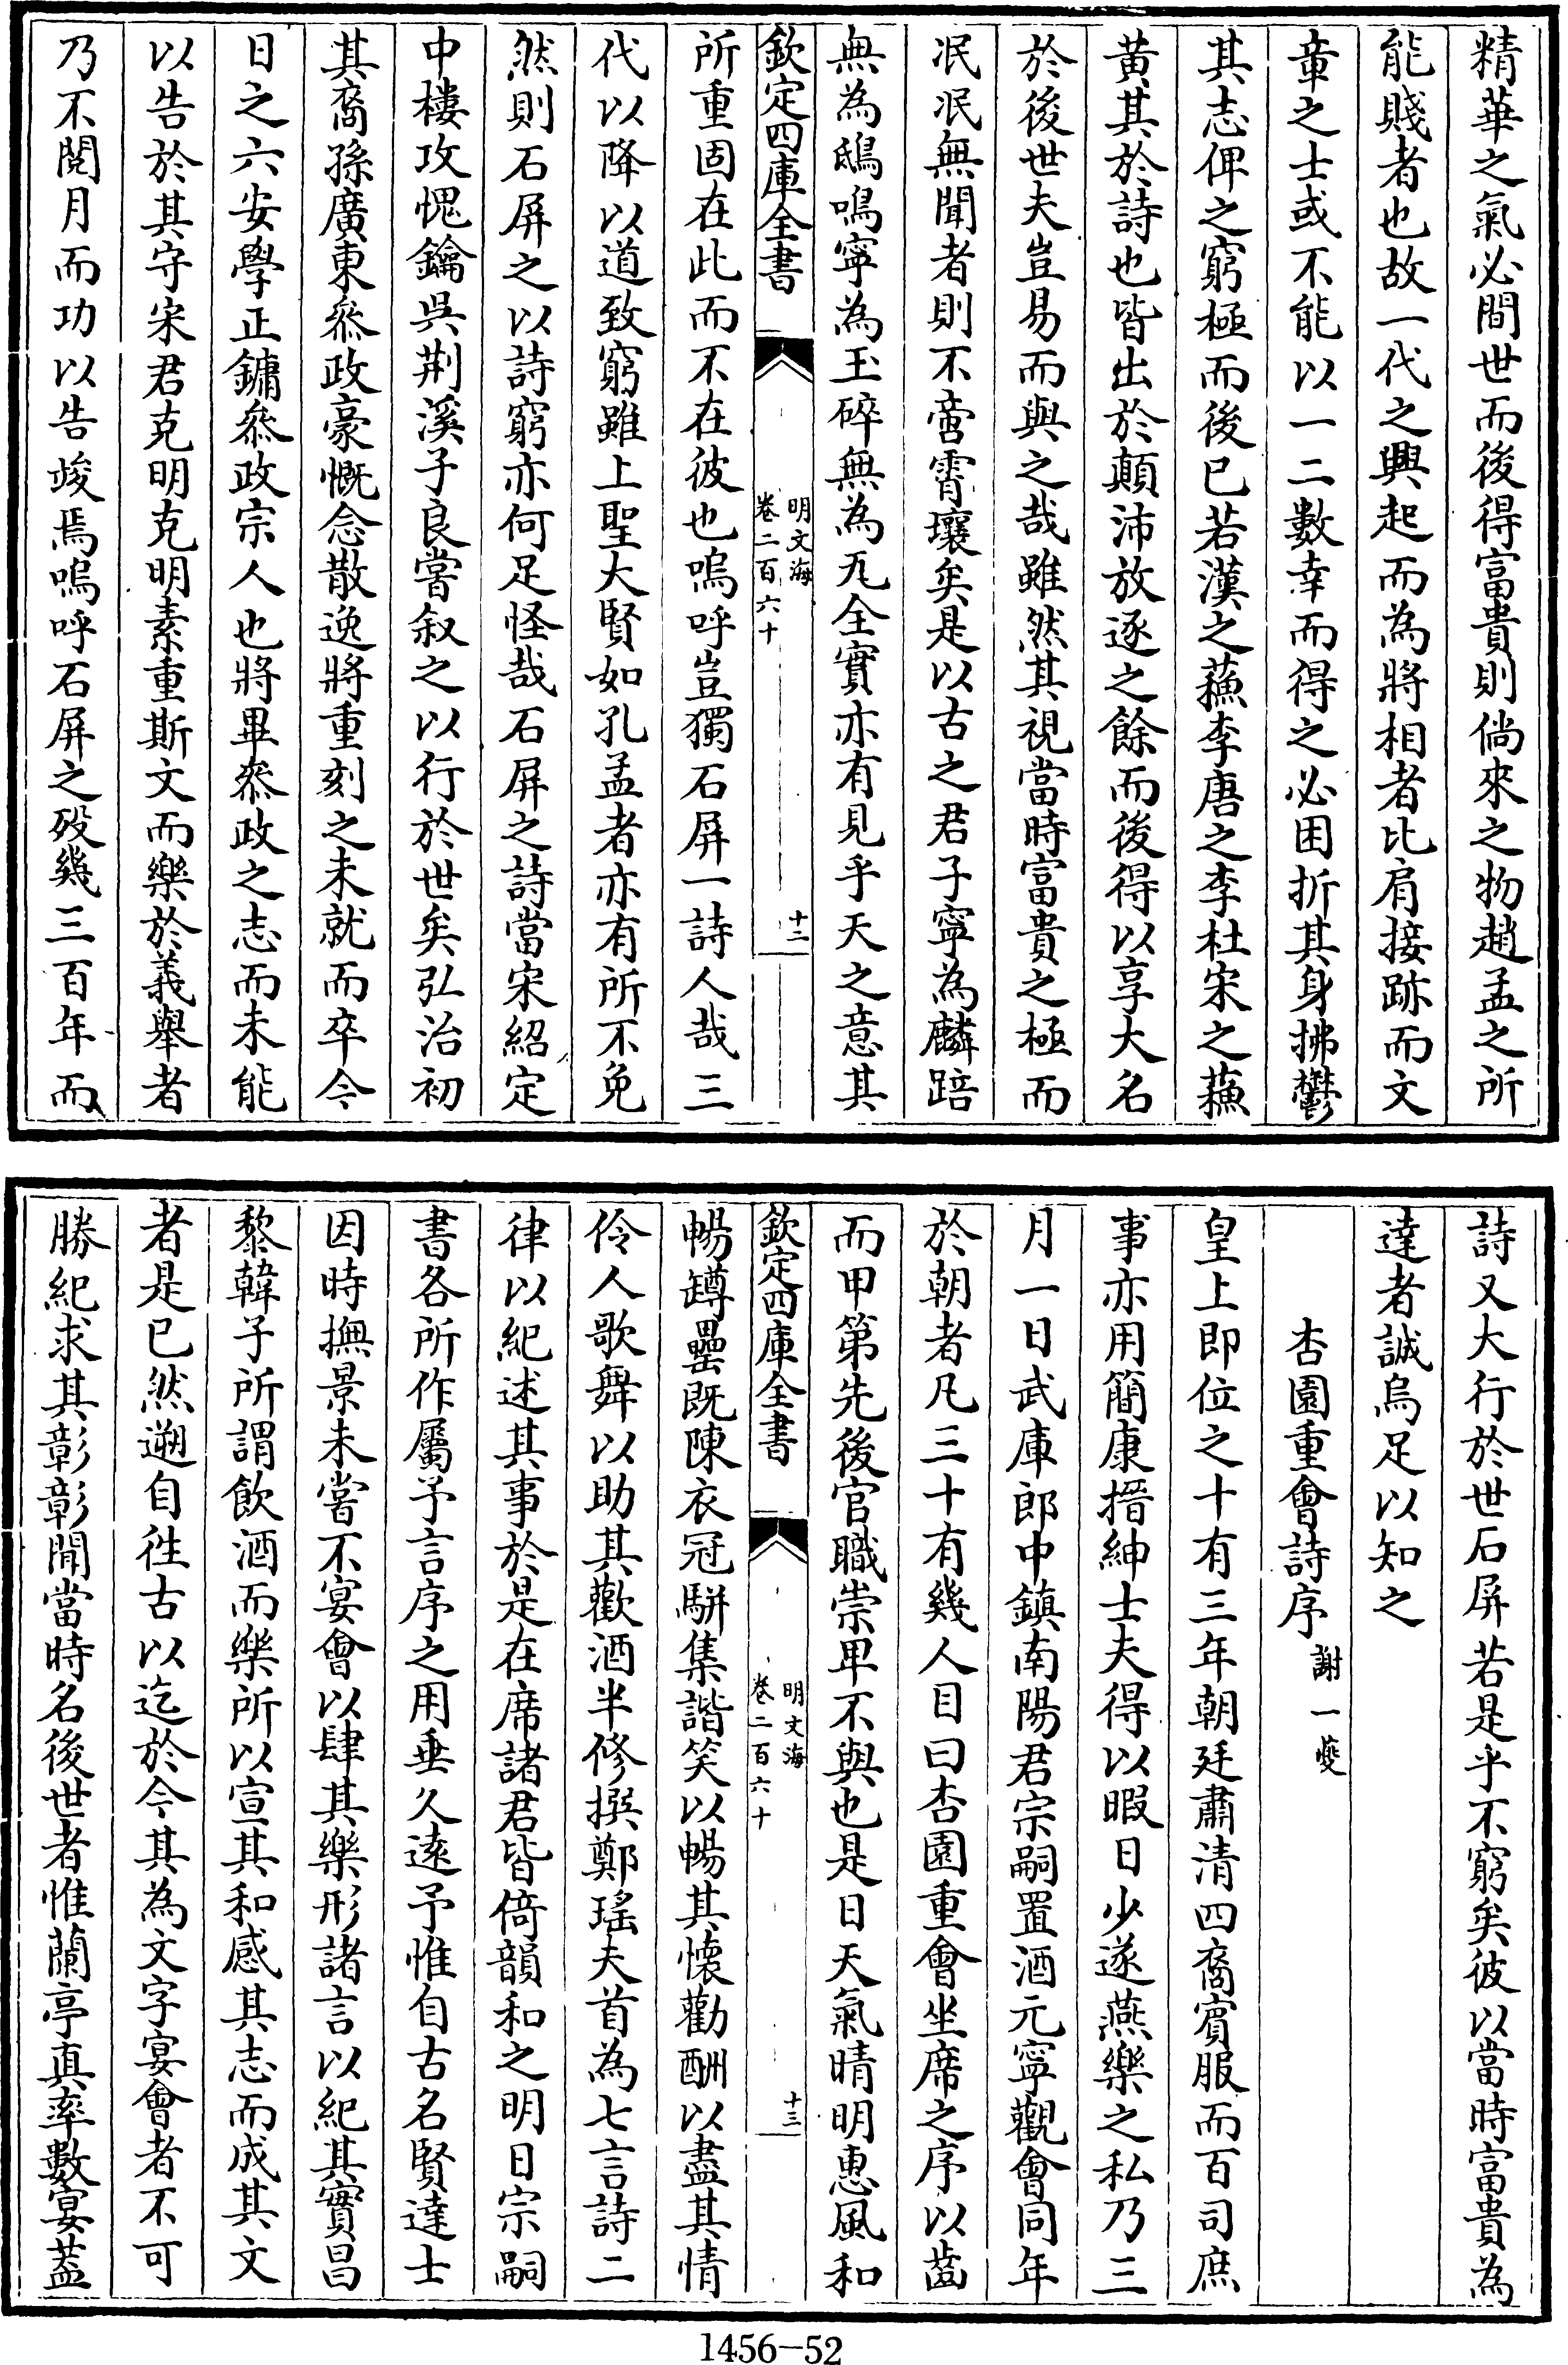 精華之氣必間世而後得富貴則倘來之物趙孟之所
能賤者也故一代之興起而為將相者比肩接跡而文
章之士或不能以一二數幸而得之必困折其身拂鬱
其志俾之窮極而後已若漢之蘓李唐之李杜宋之蘓
黄其於詩也皆出於顛沛放逐之餘而後得以享大名
於後世夫豈易而與之哉雖然其視當時富貴之極而
泯泯無聞者則不啻霄壤矣是以古之君子寧為麟踣
無為鴟鳴寧為玉碎無為瓦全實亦有見乎天之意其
欽定四庫全書
明文海
卷二百六十
十二
所重固在此而不在彼也嗚呼豈獨石屏一詩人哉三
代以降以道致窮雖上聖大賢如孔孟者亦有所不免
然則石屏之以詩窮亦何足怪哉石屏之詩當宋紹定
中樓攻愧鑰吳荆溪子良嘗叙之以行於世矣弘治初
其裔孫廣東叅政豪慨念散逸將重刻之未就而卒今
日之六安學正鏞叅政宗人也將畢叅政之志而未能
以告於其守宋君克明克明素重斯文而樂於義舉者
乃不閱月而功以告竣焉嗚呼石屏之歿幾三百年而
詩又大行於世石屏若是乎不窮矣彼以當時富貴為
達者誠烏足以知之
杏園重會詩序 謝一夔
皇上即位之十有三年朝廷肅清四裔賓服而百司庶
事亦用簡康搢紳士夫得以暇日少遂燕樂之私乃三
月一日武庫郎中鎮南陽君宗嗣置酒元寧觀會同年
於朝者凡三十有幾人目曰杏園重會坐席之序以齒
而甲第先後官職崇卑不與也是日天氣晴明惠風和
欽定四庫全書
明文海
卷二百六十
十三
暢罇罍既陳衣冠駢集諧笑以暢其懷勸酬以盡其情
伶人歌舞以助其歡酒半修撰鄭瑤夫首為七言詩二
律以紀述其事於是在席諸君皆倚韻和之明日宗嗣
書各所作屬予言序之用垂久遠予惟自古名賢達士
因時撫景未嘗不宴會以肆其樂形諸言以紀其實昌
黎韓子所謂飲酒而樂所以宣其和感其志而成其文
者是已然遡自徃古以迄於今其為文字宴會者不可
勝紀求其彰彰聞當時名後世者惟蘭亭真率數宴葢
1456-52